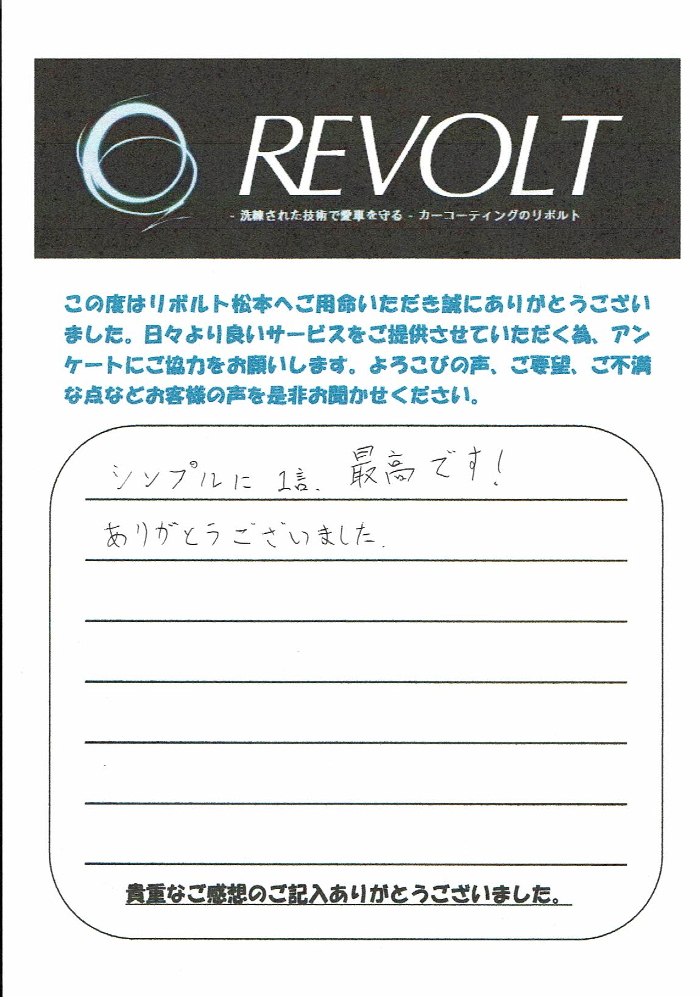 REVOLT
- 洗練された技術で愛車を守る - カーコーティングのリボルト
この度はリボルト松本へご用命いただき誠にありがとうござい
ました。日々より良いサービスをご提供させていただく為、アン
ケートにご協力をお願いします。よろこびの声、ご要望、ご不満
な点などお客様の声を是非お聞かせください。
シンプルに 1言. 最高です!
ありがとうございました.
貴重なご感想のご記入ありがとうございました。